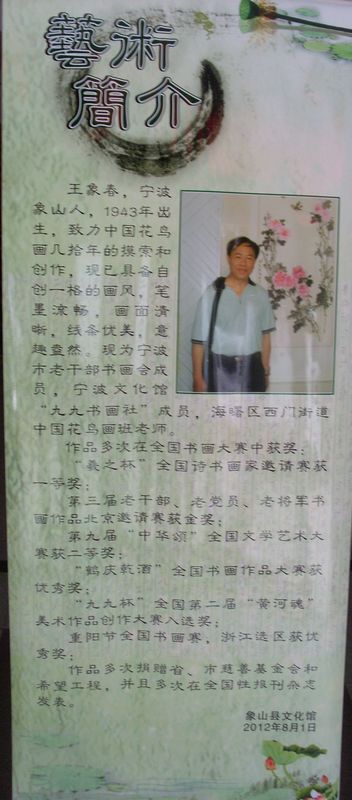 藝術
簡介
王象春，宁波
象山人，1943年出
生，致力中国花鸟
画几拾年的摸索和
创作，现已具备自
创一格的画风，笔
墨流畅，画面清
晰，线条优美，意
趣盎然。现为宁波
市老干部书画会成
员，宁波文化馆
“九九书画社”成员，海曙区西门街道
中国花鸟画班老师。
作品多次在全国书画大赛中获奖；
“羲之杯”全国诗书画家邀请赛获
一等奖；
第三届老干部、老党员、老将军书
画作品北京邀请赛获金奖；
第九届“中华颂”全国文学艺术大
赛获二等奖；
“鹤庆乾酒”全国书画作品大赛获
优秀奖；
“九九杯”全国第二届“黄河魂”
美术作品创作大赛入选奖；
重阳节全国书画赛，浙江选区获优
秀奖；
作品多次捐赠省、市慈善基金会和
希望工程，并且多次在全国性报刊杂志
发表。
象山县文化馆
2012年8月1日